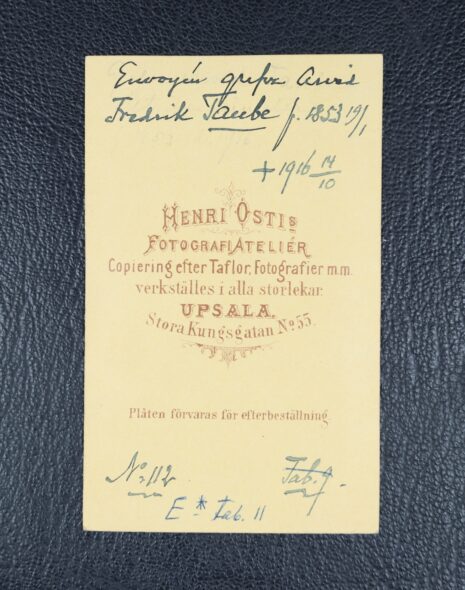 Envoyén grefve Arvid
Fredrik Taube f. 1853 19/1
+ 1916 14/10
HENRI OSTIS
FOTOGRAFIATELIÉR
Copiering efter Taflor, Fotografier m.m.
verkställes i alla storlekar.
UPSALA.
Stora Kungsgatan No 55.
Plåten förvaras för efterbeställning.
No 112
Tab. 9.
E* tab. 11